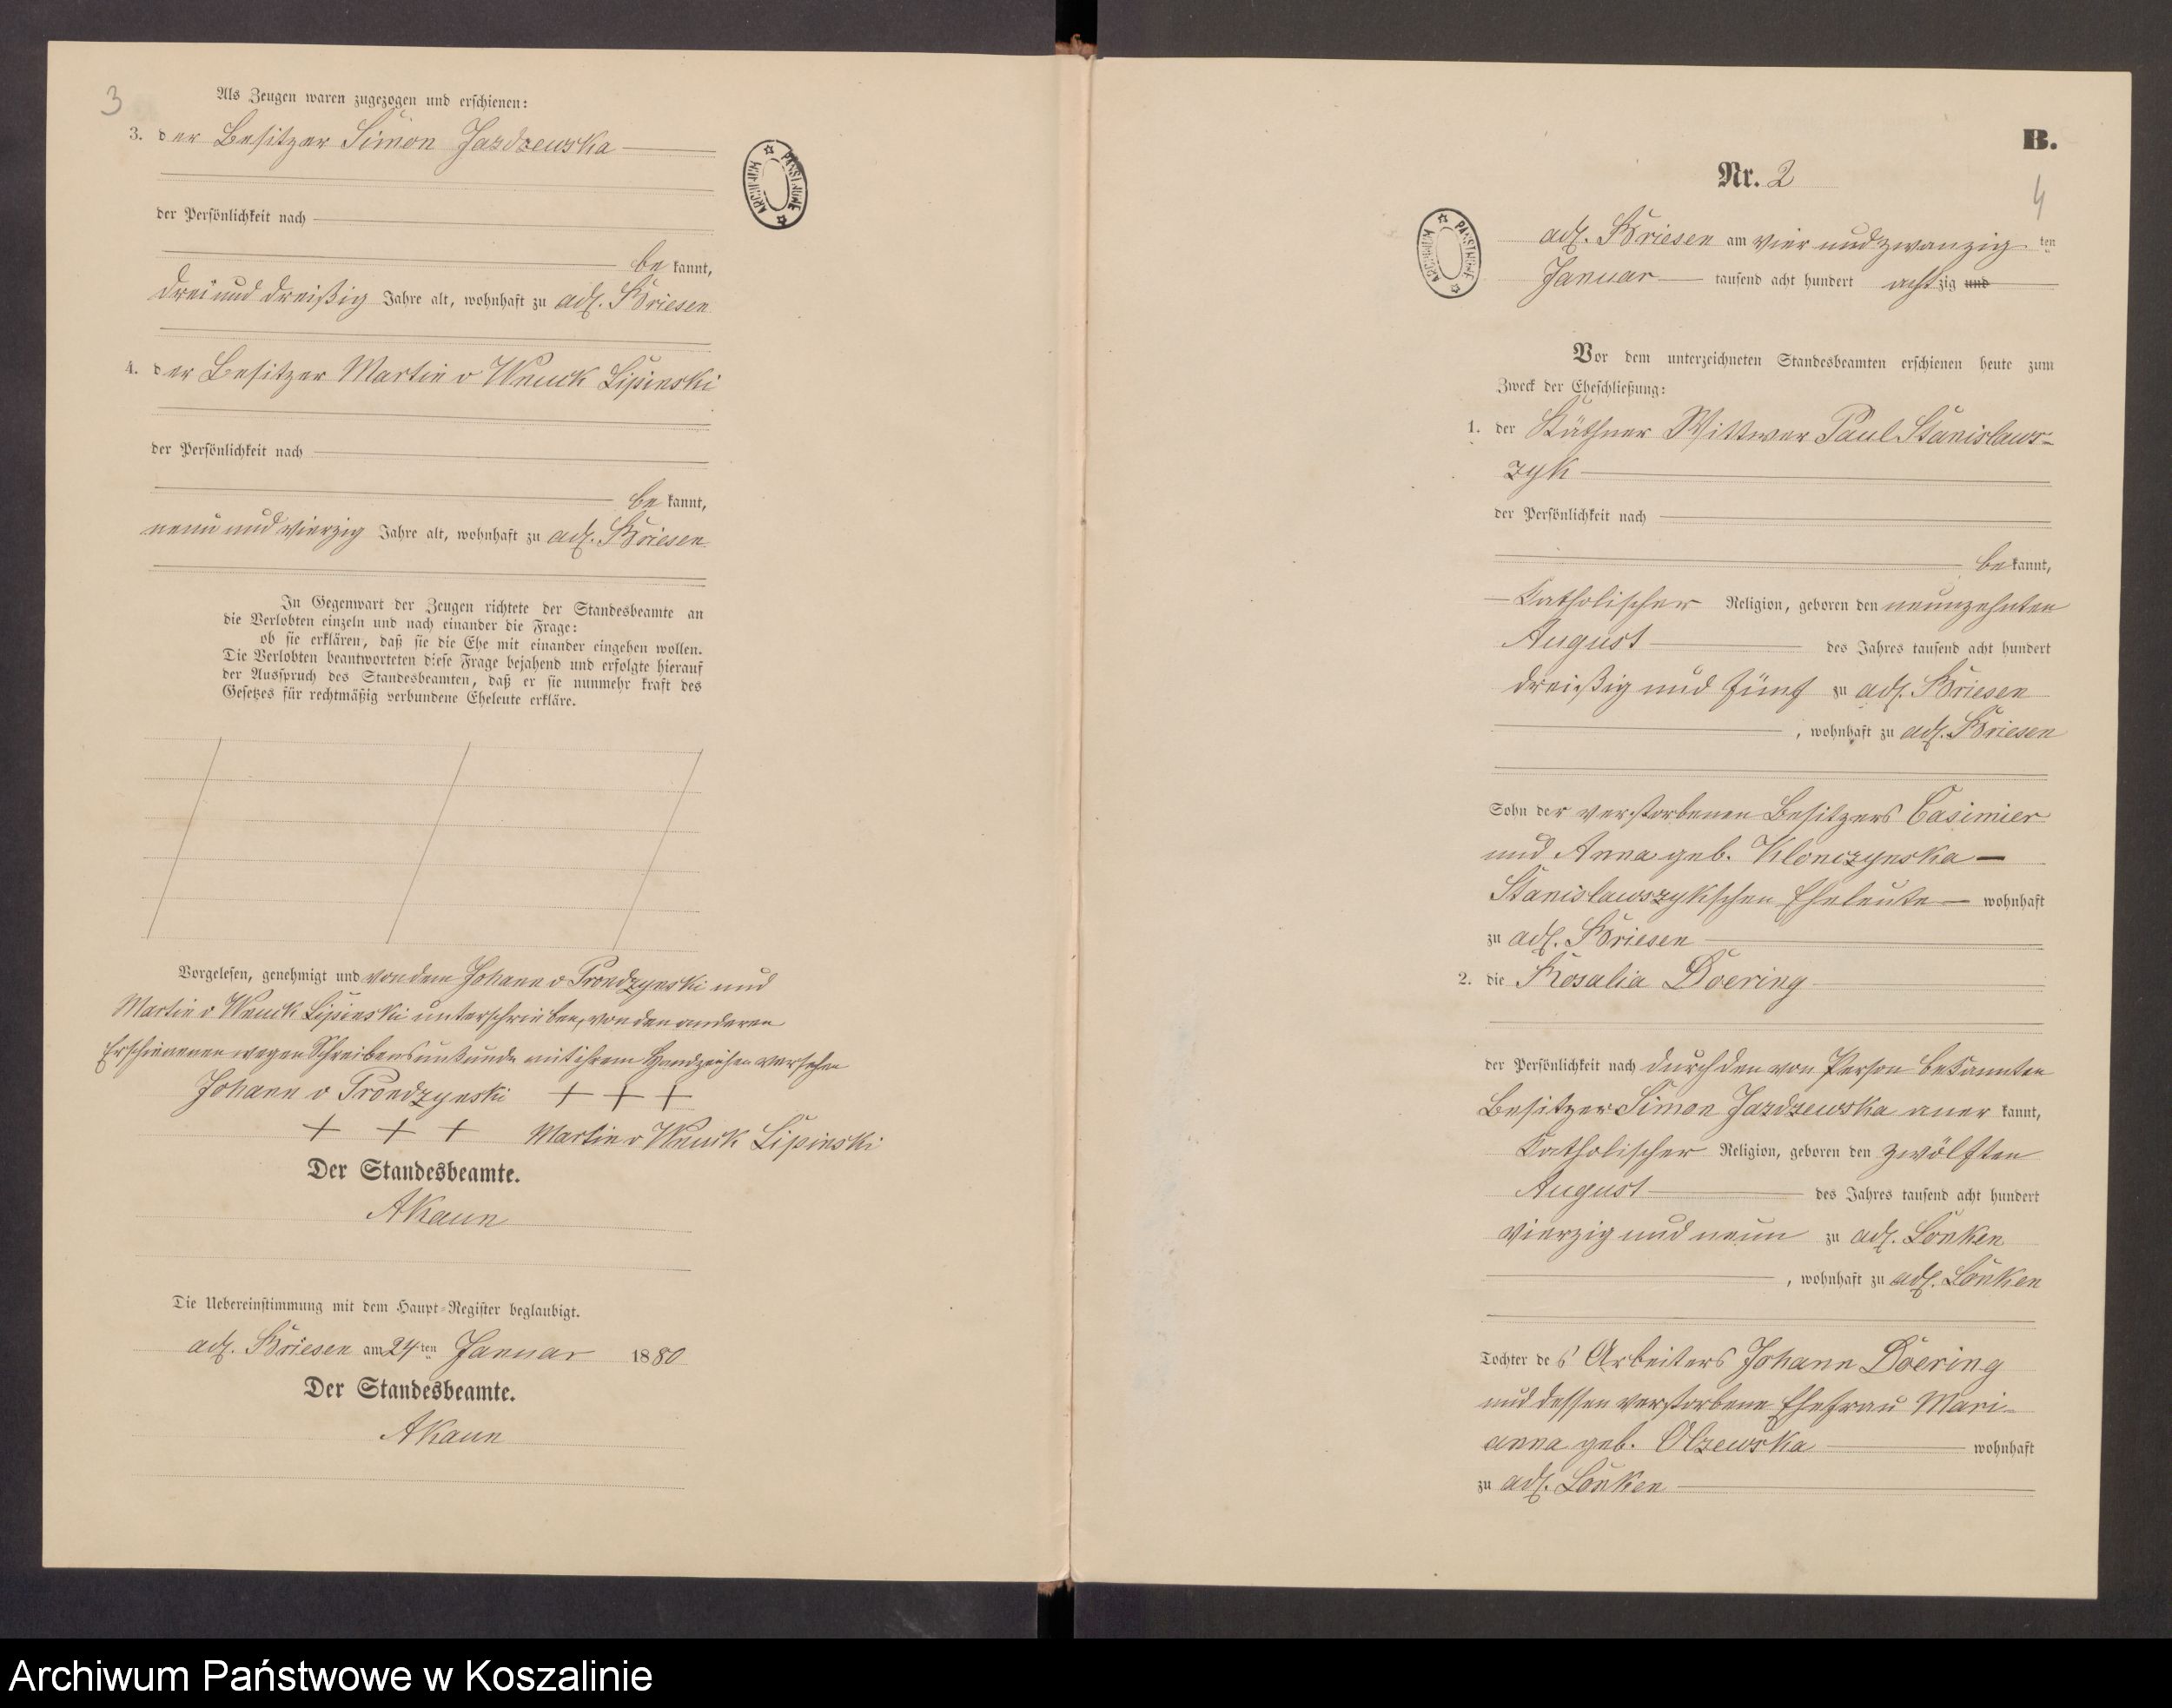 3
Als Zeugen waren zugezogen und erschienen:
3. der Besitzer Simon Jazdzewska
der Persönlichkeit nach
bekannt,
drei und dreißig Jahre alt, wohnhaft zu adl. Briesen
4. der Besitzer Martin v Wnuck Lipinski
der Persönlichkeit nach
bekannt,
neun und vierzig Jahre alt, wohnhaft zu adl. Briesen
In Gegenwart der Zeugen richtete der Standesbeamte an
die Verlobten einzeln und nach einander die Frage:
ob sie erklären, daß sie die Ehe mit einander eingehen wollen.
Die Verlobten beantworteten diese Frage bejahend und erfolgte hierauf
der Ausspruch des Standesbeamten, daß er sie nunmehr kraft des
Gesetzes für rechtmäßig verbundene Eheleute erkläre.
Vorgelesen, genehmigt und von dem Johann v Prondzynski und
Martin v Wnuck Lipinski unterschrieben, von den anderen
Erschienenen wegen Schreibensunkunde mit ihrem Handzeichen versehen
Johann v Prondzynski + + +
+ + + Martin v Wnuck Lipinski
Der Standesbeamte.
AKaun
Die Uebereinstimmung mit dem Haupt-Register beglaubigt.
adl. Briesen am 24ten Januar 1880
Der Standesbeamte.
AKaun
ARCHIWUM PAŃSTWOWE
B.
Nr. 2
4
ARCHIWUM PAŃSTWOWE
adl. Briesen am vier und zwanzigten
Januar tausend acht hundert achtzig und
Vor dem unterzeichneten Standesbeamten erschienen heute zum
Zweck der Eheschließung:
1. der Käthner Wittwer Paul Stanislaws-
zyk
der Persönlichkeit nach
bekannt,
Katholischer Religion, geboren den neunzehnten
August des Jahres tausend acht hundert
dreißig und fünf zu adl. Briesen
, wohnhaft zu adl. Briesen
Sohn der verstorbenen Besitzers Casimier
und Anna geb. Klonczynska
Stanislawszykschen Eheleute wohnhaft
zu adl. Briesen
2. die Rosalia Doering
der Persönlichkeit nach durch den von Person bekannten
Besitzer Simon Jazdzewska anerkannt,
Katholischer Religion, geboren den zwölften
August des Jahres tausend acht hundert
vierzig und neun zu adl. Lonken
, wohnhaft zu adl. Lonken
Tochter des Arbeiters Johann Doering
und dessen verstorbene Ehefrau Mari-
anna geb. Olzewska wohnhaft
zu adl. Lonken
Archiwum Państwowe w Koszalinie